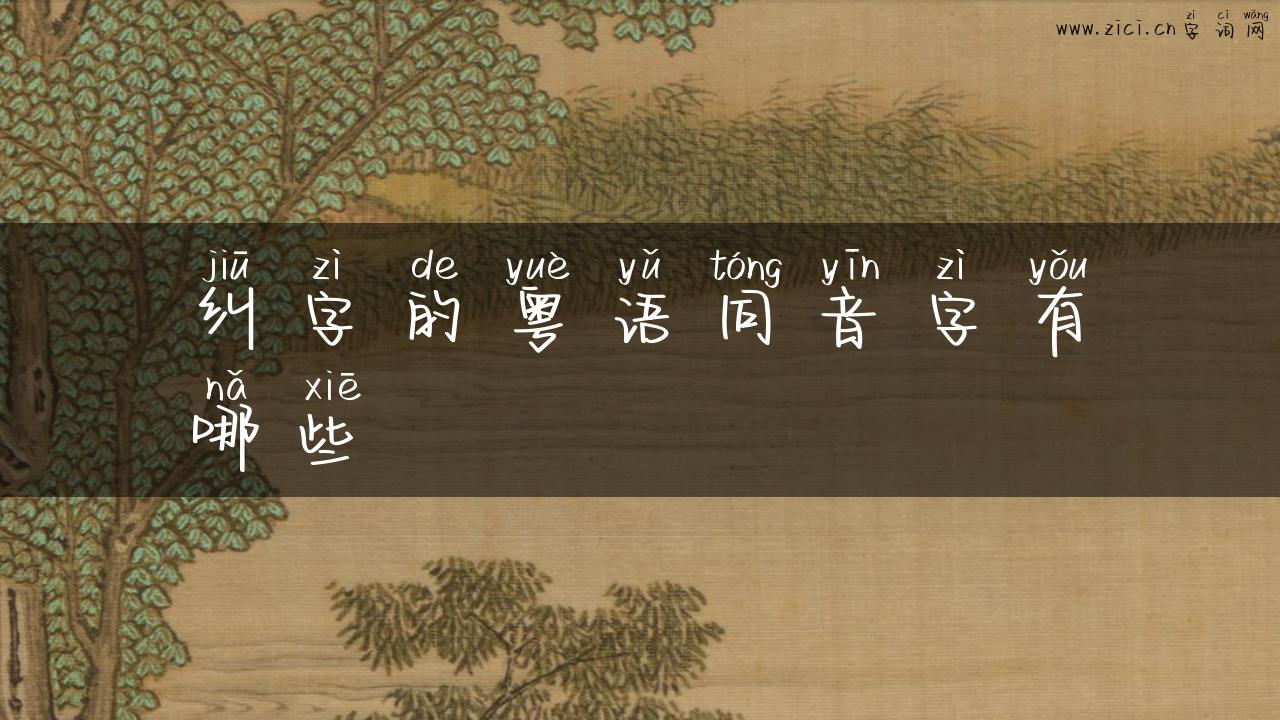 zì cí wǎng
www.zici.cn 字词网
jiū zì de yuè yǔ tóng yīn zì yǒu
纠字的粤语同音字有
nǎ xiē
哪些